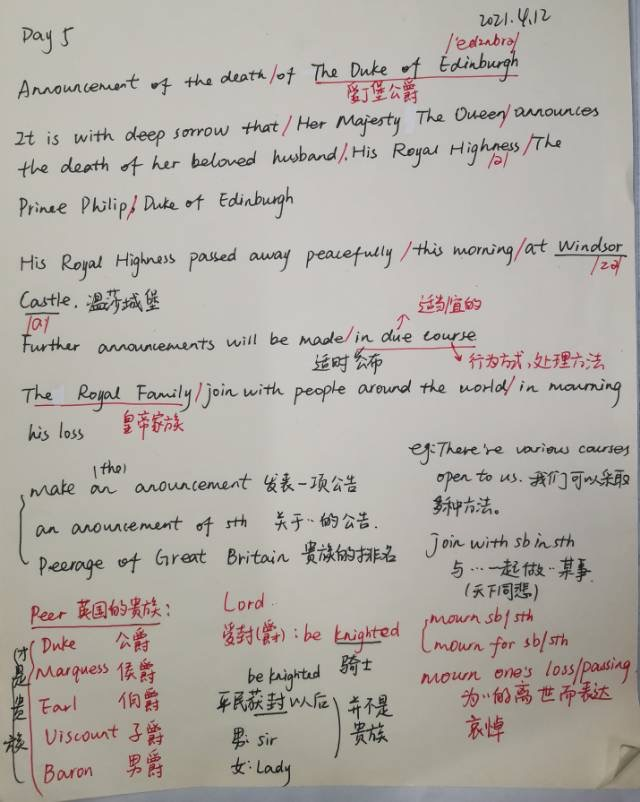 Day 5
2021.4.12
/'edɪnbrə/
Announcement of the death/of The Duke of Edinburgh
爱丁堡公爵
It is with deep sorrow that/Her Majesty The Queen/announces
the death of her beloved husband/.His Royal Highness/The
/ə/
Prince Philip, Duke of Edinburgh
His Royal Highness passed away peacefully/this morning/at Windsor
/zə/
Castle. 温莎城堡
/ɑ/
适当/宜的
Further announcements will be made/in due course
适时公布
行为方式,处理方法
The Royal Family/join with people around the world/in mourning
his loss 皇帝家族
(the)
make an anouncement 发表一项公告
an anouncement of sth 关于…的公告.
Peerage of Great Britain 贵族的排名
eg:There're various courses
open to us. 我们可以采取
多种方法。
join with sb in sth
与…一起做…某事
(天下同悲)
Peer 英国的贵族:
才是贵族
Duke 公爵
Marquess 侯爵
Earl 伯爵
Viscount 子爵
Baron 男爵
Lord
受封(爵):be knighted
骑士
be knighted
平民获封以后
男:sir
女:Lady
并不是
贵族
mourn sb/sth
mourn for sb/sth
mourn one's loss/passing
为…的离世而表达
哀悼